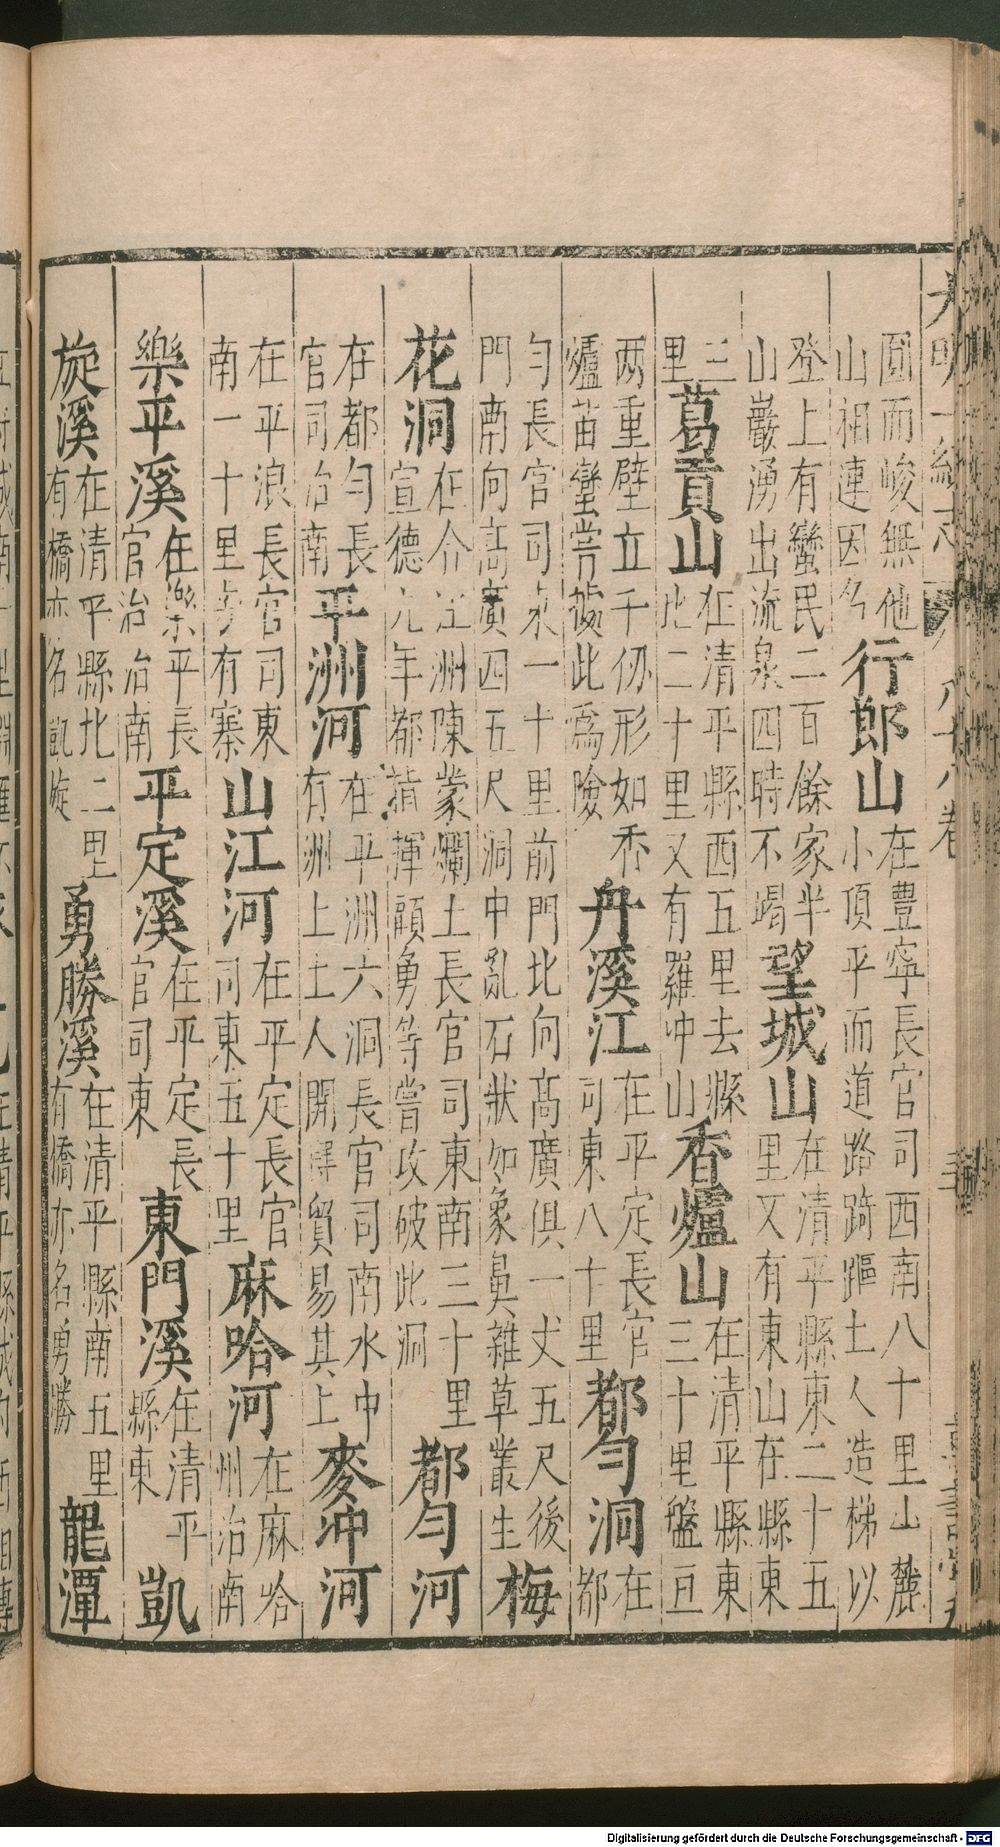 大明一統志 八十八卷
圓而峻無他山相連因名行郎山在豊寧長官司西南八十里山麓小頂平而道路踦土人造梯以
登上有蠻民二百餘家半山巖湧出流泉四時不竭望城山在清平縣東二十五里又有東山在縣東
三里葛貢山在清平縣西五里去縣北二十里又有羅冲山香爐山在清平縣東三十里盤亘
两重壁立千仞形如香爐苗蠻嘗據此爲險舟溪江在平定長官司東八十里都匀洞在都
匀長官司東一十里前門北向高廣俱一丈五尺後門南向高廣四五尺洞中亂石狀如象鼻雜草叢生梅
花洞在合江洲陳蒙爛土長官司東南三十里宣德元年都指揮顧勇等嘗攻破此洞都匀河
在都匀長官司治南平洲河在平洲六洞長官司南水中有洲上土人開場貿易其上麥冲河
在平浪長官司東南一十里旁有寨山江河在平定長官司東五十里麻哈河在麻哈州治南
樂平溪在樂平長官治治南平定溪在平定長官司東東門溪在清平縣東凱
旋溪在清平縣北二里有橋亦名凱旋勇勝溪在清平縣南五里有橋亦名勇勝龍潭
Digitalisierung gefördert durch die Deutsche Forschungsgemeinschaft - DFG